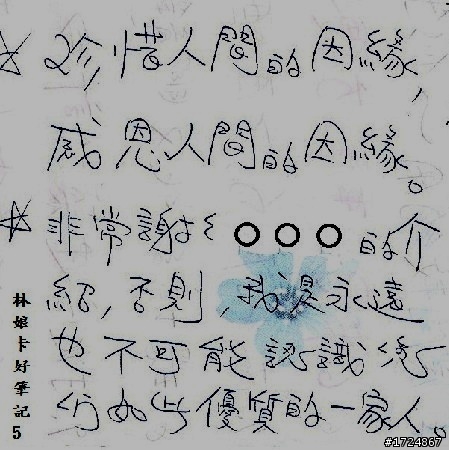 ☆珍惜人間的因緣，
感恩人間的因緣。
☆非常謝謝○○○的介
紹，否則，我是永遠
也不可能認識您
们如此優質的一家人。
林娘卡好筆記5
#1724867